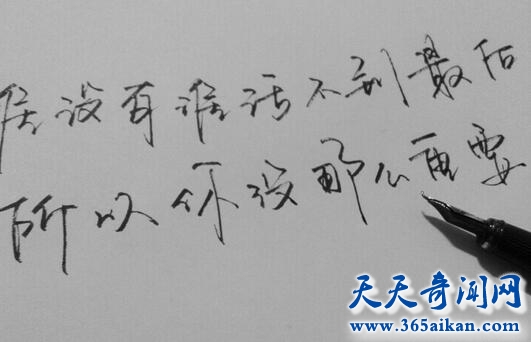 谁没有谁活不到最后
所以你没那么重要
天天奇闻网
www.365aikan.com